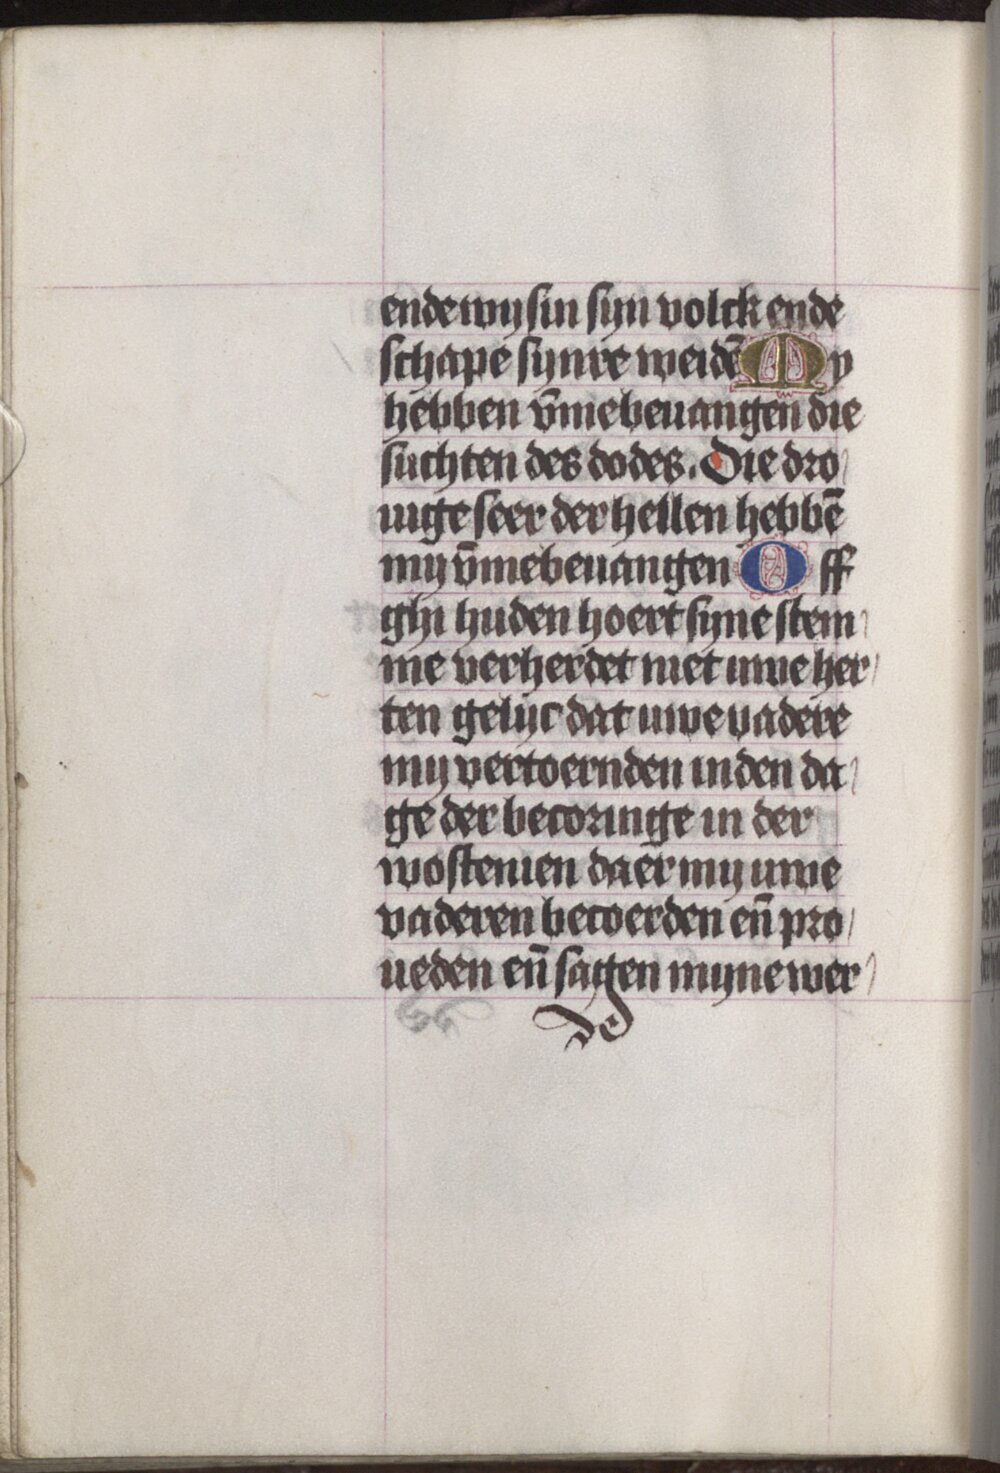 ende wy sin syn volck ende
schape synre weidē My
hebben v̄mebeuangen die
suchten des dodes. Die dro
uige seer der hellen hebbē
my v̄mebeuangen Off
ghi huden hoert syne stem
me verherdet niet uwe her
ten gelijc dat uwe vadere
my vertoernden in den da
ge der becoringe in der
wostenien daer my uwe
vaderen becoerden eñ pro
ueden eñ sagen myne wer
de